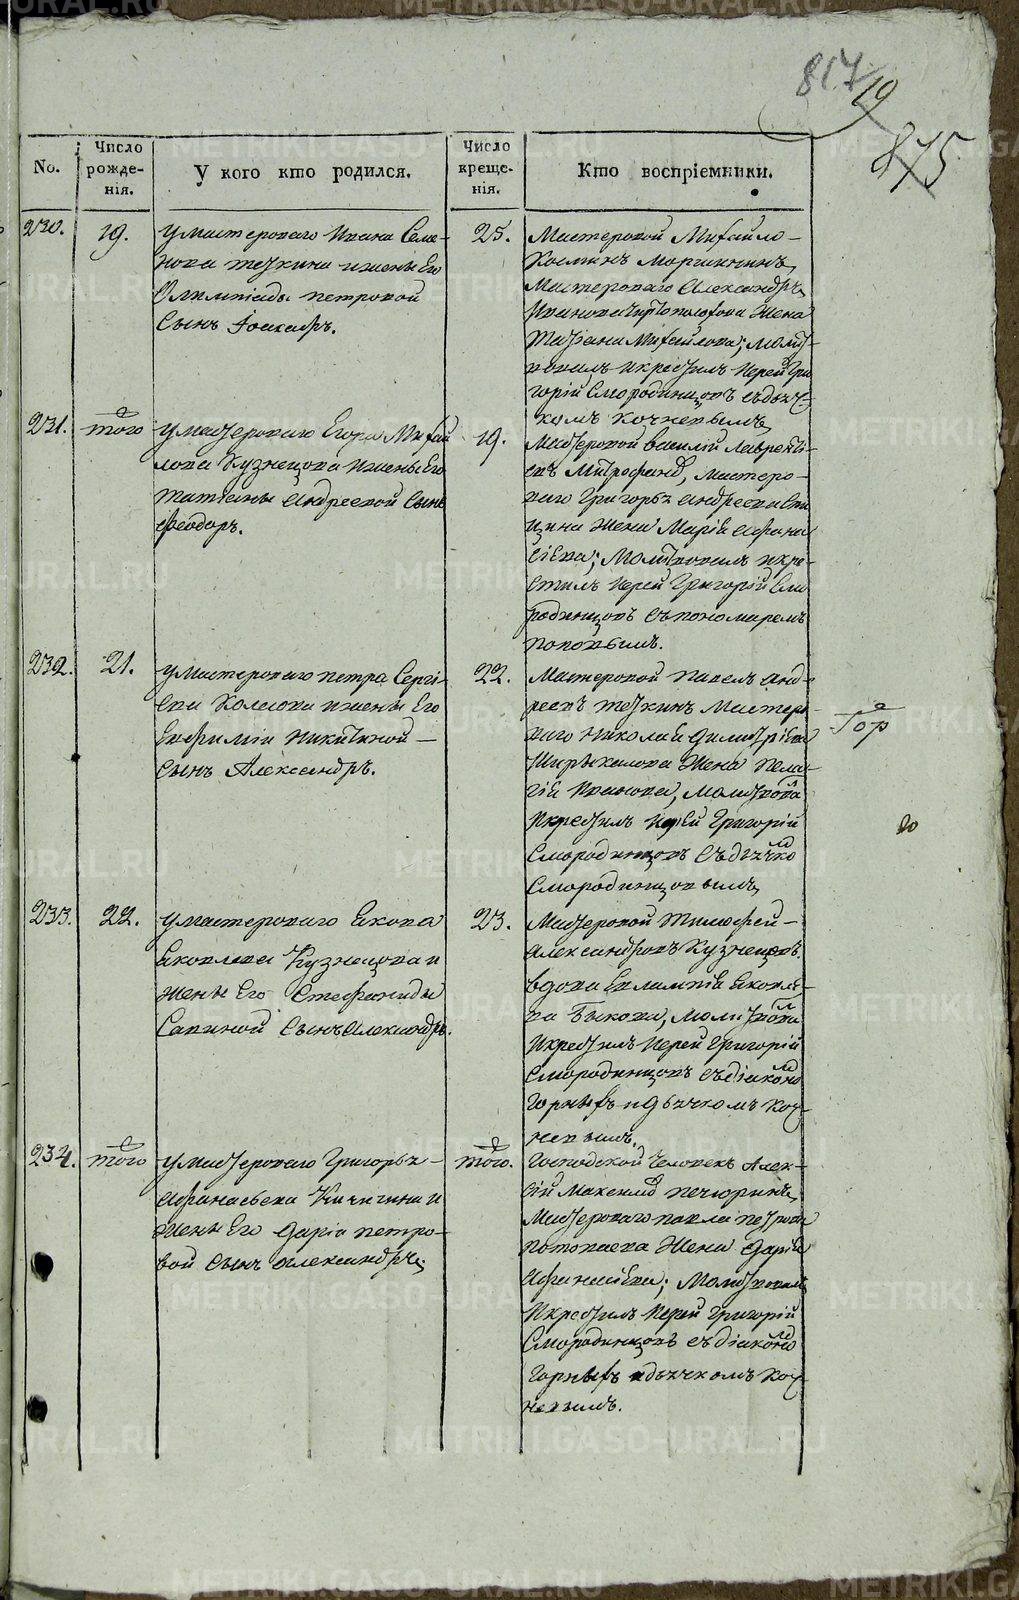 817
19
875
No.
Число рожде-нія.
У кого кто родился.
Число креще-нія.
Кто воспріемники.
230.
19.
у мастероваго Ивана Семе-
нова тезкина и жены Его
Олимпіады петровой
Сынъ
25.
Мастеровой Михайло
Космичъ
Мастероваго Александръ
Иванова жена
Татіана Михайлова; молит-
вовалъ и крестилъ Іерей Гри-
горій Смородинцовъ съ дьяч-
комъ Кочневымъ
231.
того
у мастероваго Егора Михай
лова Кузнецова и жены Его
татіаны Андреевой Сынъ
феодоръ.
19.
Мастеровой василій Лавренті-
евъ Митрофановъ, мастеро-
ваго Григорья Андреева Спи
цина жена Марія Афана
сіева; Молитвовалъ и кре-
стилъ Іерей Григорій Смо
родинцовъ съ пономаремъ
поповымъ.
232.
21.
у мастероваго петра Сергѣ-
ева Колесова и жены Его
Евфиміи Никитиной
Сынъ Александръ.
22.
Мастеровой павелъ Анд-
реевъ тезкинъ Мастеро-
ваго Николая Димитріева
Ширыкалова Жена пела-
гія Иванова, молитвовалъ
И крестилъ Іерей Григорій
Смородинцовъ съ дьячкомъ
Смородинцовымъ
Гор
20
233.
22.
у мастероваго Якова
Яковлева Кузнецова и
жены Его Стефаниды
Савиной Сынъ Александръ.
23.
Мастеровой Тимофей
Александровъ Кузнецовъ.
вдова Евлампія Яковле-
ва Быкова, молитвовалъ
И крестилъ Іерей Григорій
Смородинцовъ съ діакономъ
Горныхъ и дьячкомъ Коч-
невымъ.
234.
того
у мастероваго Григорья
Афанасьева Кичигина и
жены Его Даріи петро-
вой Сынъ Александръ.
того.
Господской Человекъ Алек-
сій Максимовъ печюринъ,
Мастероваго павла петрова
потопаева Жена Дарія
Афанасіева; Молитвовалъ
И крестилъ Іерей Григорій
Смородинцовъ съ діакономъ
Горныхъ и дьячкомъ Коч-
невымъ.
METRIKI.GASO-URAL.RU